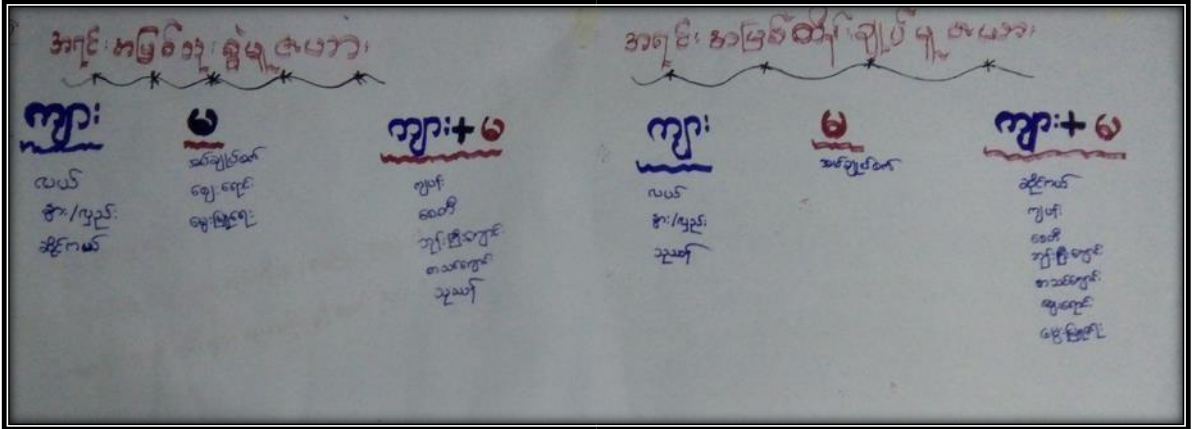 အရင်းအမြစ်သုံးစွဲမှုဇယား
ကျား
လယ်
နွား/လှည်း
ဆိုင်ကယ်
မ
အပ်ချုပ်စက်
ဈေးရောင်း
မွေးမြူရေး
ကျား+မ
ကျပန်း
စေတီ
ဘုန်းကြီးကျောင်း
စာသင်ကျောင်း
သုဿာန်
အရင်းအမြစ်ထိန်းချုပ်မှုဇယား
ကျား
လယ်
နွား/လှည်း
သုဿာန်
မ
အပ်ချုပ်စက်
ကျား+မ
ဆိုင်ကယ်
ကျပန်း
စေတီ
ဘုန်းကြီးကျောင်း
စာသင်ကျောင်း
ဈေးရောင်း
မွေးမြူရေး